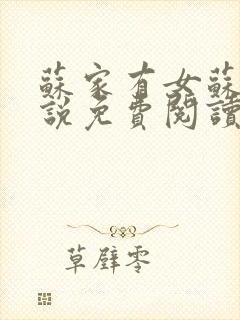 蘇家有女蘇
說免費閱讀
草壁零